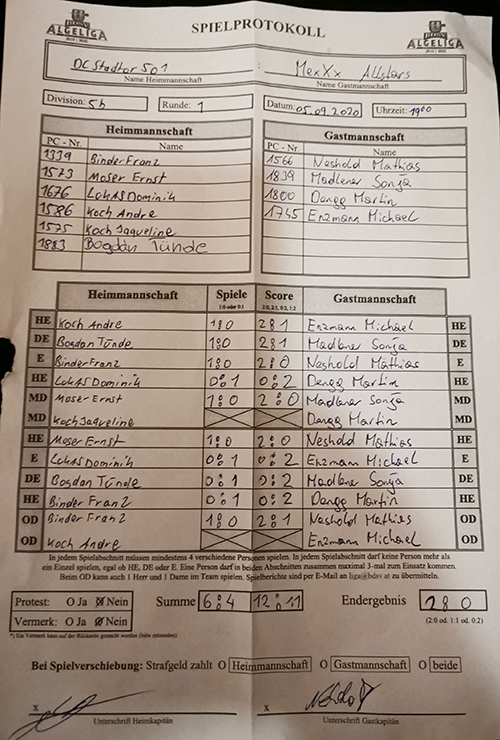 ALGELIGA
SPIELPROTOKOLL
ALGELIGA
DC Stadtor 501 : MexXx Allstars
Name Heimmannschaft Name Gastmannschaft
Division: 5b Runde: 1 Datum: 05.09.2020 Uhrzeit: 19 00
Heimmannschaft Gastmannschaft
PC - Nr. Name PC - Nr. Name
1339 Binder Franz 1566 Neshold Mathias
1573 Moser Ernst 1839 Madlener Sonja
1676 Lukas Dominik 1800 Dangg Martin
1586 Koch Andre 1745 Enzmann Michael
1575 Koch Jaqueline
1883 Bogdan Tünde
Heimmannschaft Spiele Score Gastmannschaft
1:0 oder 0:1 2:0, 2:1, 0:2, 1:2
HE Koch Andre 1:0 2:1 Enzmann Michael HE
DE Bogdan Tünde 1:0 2:1 Madlener Sonja DE
E Binder Franz 1:0 2:0 Neshold Mathias E
HE Lukas Dominik 0:1 0:2 Dangg Martin HE
MD Moser Ernst 1:0 2:0 Madlener Sonja MD
MD Koch Jaqueline Dangg Martin MD
HE Moser Ernst 1:0 2:0 Neshold Mathias HE
E Lukas Dominik 0:1 0:2 Enzmann Michael E
DE Bogdan Tünde 0:1 0:2 Madlener Sonja DE
HE Binder Franz 0:1 0:2 Dangg Martin HE
OD Binder Franz 1:0 2:1 Neshold Mathies OD
OD Koch Andre Enzmann Michael OD
In jedem Spielabschnitt müssen mindestens 4 verschiedene Personen spielen. In jedem Spielabschnitt darf keine Person mehr als
ein Einzel spielen, egal ob HE, DE oder E. Eine Person darf in beiden Abschnitten zusammen maximal 3-mal zum Einsatz kommen.
Beim OD kann auch 1 Herr und 1 Dame im Team spielen. Spielberichte sind per E-Mail an liga@bdsv.at zu übermitteln.
Protest: O Ja O Nein Summe 6:4 12:11 Endergebnis 2:0
Vermerk: O Ja O Nein (2:0 od. 1:1 od. 0:2)
*) Ein Vermerk kann auf der Rückseite gemacht werden (bitte mitsenden)
Bei Spielverschiebung: Strafgeld zahlt O Heimmannschaft O Gastmannschaft O beide
x x
Unterschrift Heimkapitän Unterschrift Gastkapitän